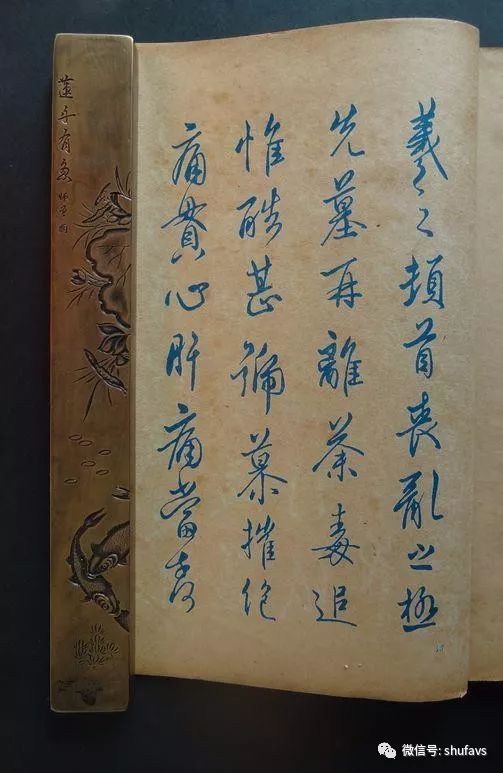 羲之頓首喪亂之極
先墓再離荼毒追
惟酷甚號慕摧絕
痛貫心肝痛當奈
蓮年有魚
微信号: shufavs